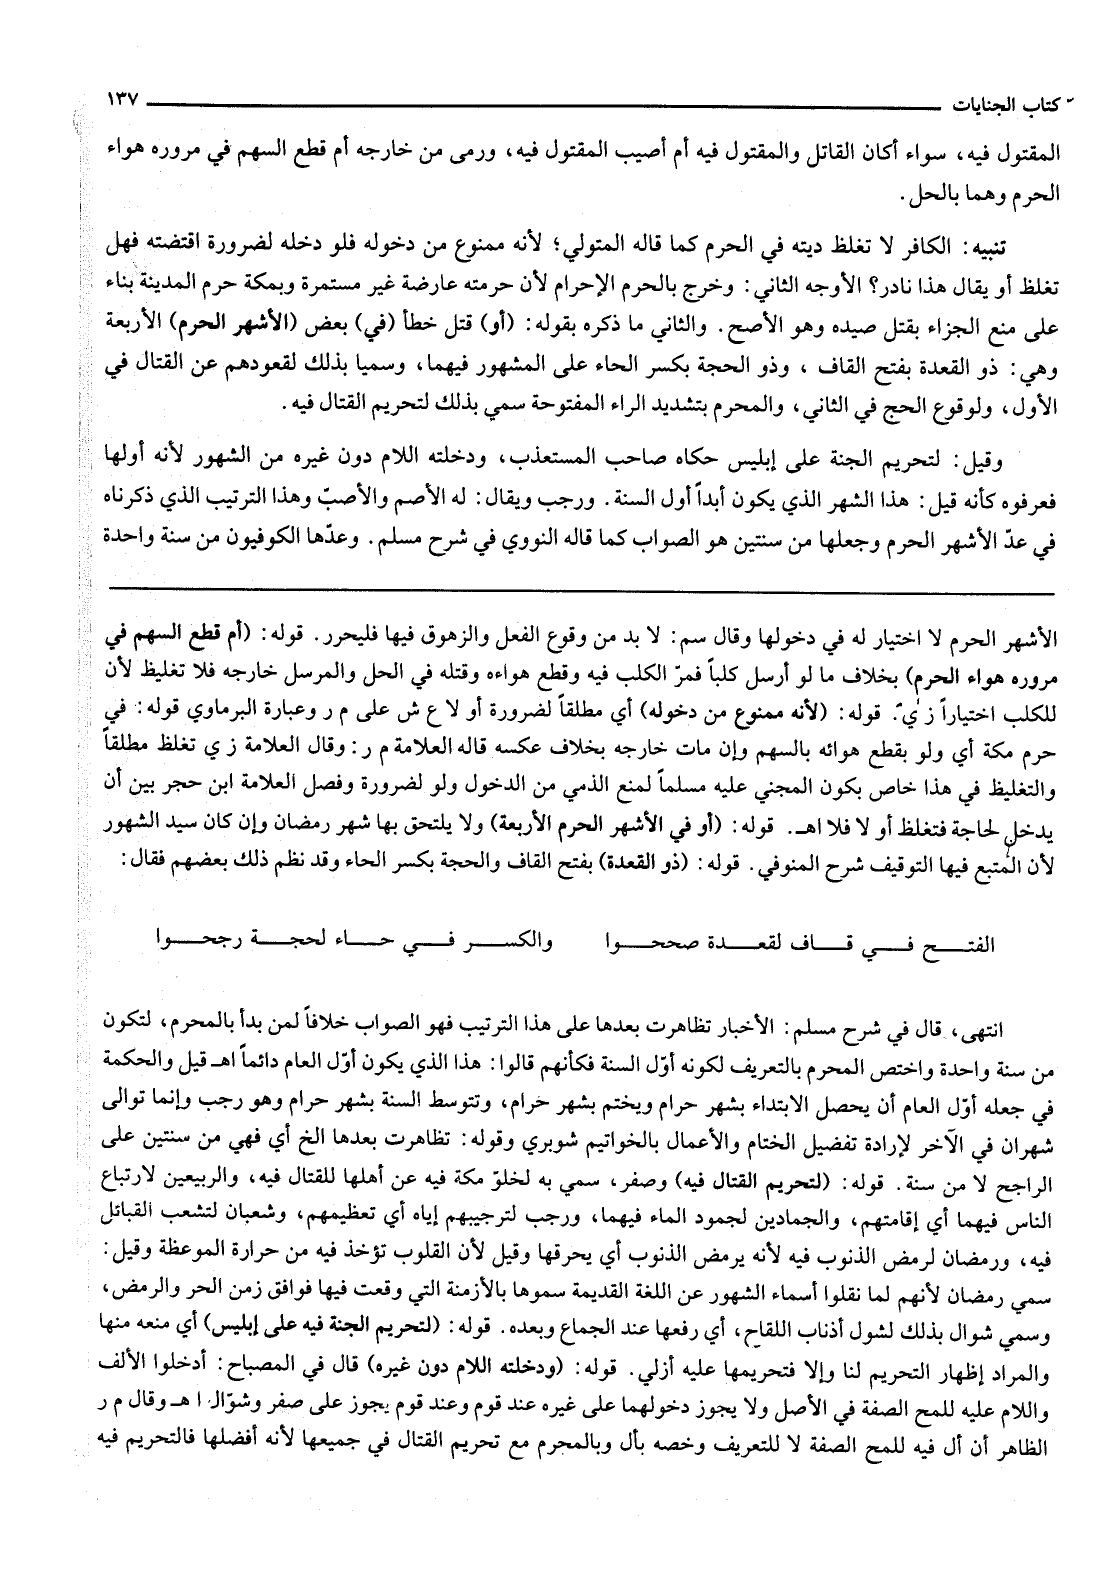 كتاب الجنايات ١٣٧
المقتول فيه، سواء أكان القاتل والمقتول فيه أم أصيب المقتول فيه، ورمى من خارجه أم قطع السهم في مروره هواء
الحرم وهما بالحل.
تنبيه: الكافر لا تغلظ ديته في الحرم كما قاله المتولي؛ لأنه ممنوع من دخوله فلو دخله لضرورة اقتضته فهل
تغلظ أو يقال هذا نادر؟ الأوجه الثاني: وخرج بالحرم الإحرام لأن حرمته عارضة غير مستمرة وبمكة حرم المدينة بناء
على منع الجزاء بقتل صيده وهو الأصح. والثاني ما ذكره بقوله: (أو) قتل خطأ (في) بعض (الأشهر الحرم) الأربعة
وهي: ذو القعدة بفتح القاف ، وذو الحجة بكسر الحاء على المشهور فيهما، وسميا بذلك لقعودهم عن القتال في
الأول، ولوقوع الحج في الثاني، والمحرم بتشديد الراء المفتوحة سمي بذلك لتحريم القتال فيه.
وقيل: لتحريم الجنة على إبليس حكاه صاحب المستعذب، ودخلته اللام دون غيره من الشهور لأنه أولها
فعرفوه كأنه قيل: هذا الشهر الذي يكون أبداً أول السنة. ورجب ويقال: له الأصم والأصبّ وهذا الترتيب الذي ذكرناه
في عدّ الأشهر الحرم وجعلها من سنتين هو الصواب كما قاله النووي في شرح مسلم. وعدّها الكوفيون من سنة واحدة
الأشهر الحرم لا اختيار له في دخولها وقال سم: لا بد من وقوع الفعل والزهوق فيها فليحرر. قوله: (أم قطع السهم في
مروره هواء الحرم) بخلاف ما لو أرسل كلباً فمرّ الكلب فيه وقطع هواءه وقتله في الحل والمرسل خارجه فلا تغليظ لأن
للكلب اختياراً ز ي. قوله: (لأنه ممنوع من دخوله) أي مطلقاً لضرورة أو لا ع ش على م ر وعبارة البرماوي قوله: في
حرم مكة أي ولو بقطع هوائه بالسهم وإن مات خارجه بخلاف عكسه قاله العلامة م ر: وقال العلامة ز ي تغلظ مطلقاً
والتغليظ في هذا خاص بكون المجني عليه مسلماً لمنع الذمي من الدخول ولو لضرورة وفصل العلامة ابن حجر بين أن
يدخل لحاجة فتغلظ أو لا فلا اهـ. قوله: (أو في الأشهر الحرم الأربعة) ولا يلتحق بها شهر رمضان وإن كان سيد الشهور
لأن المتبع فيها التوقيف شرح المنوفي. قوله: (ذو القعدة) بفتح القاف والحجة بكسر الحاء وقد نظم ذلك بعضهم فقال:
الفتح في قاف لقعدة صححوا والكسر في حاء لحجة رجحوا
انتهى، قال في شرح مسلم: الأخبار تظاهرت بعدها على هذا الترتيب فهو الصواب خلافاً لمن بدأ بالمحرم، لتكون
من سنة واحدة واختص المحرم بالتعريف لكونه أوّل السنة فكأنهم قالوا: هذا الذي يكون أوّل العام دائماً اهـ قيل والحكمة
في جعله أوّل العام أن يحصل الابتداء بشهر حرام ويختم بشهر حرام، وتتوسط السنة بشهر حرام وهو رجب وإنما توالى
شهران في الآخر لإرادة تفضيل الختام والأعمال بالخواتيم شوبري وقوله: تظاهرت بعدها الخ أي فهي من سنتين على
الراجح لا من سنة. قوله: (لتحريم القتال فيه) وصفر، سمي به لخلوّ مكة فيه عن أهلها للقتال فيه، والربيعين لارتباع
الناس فيهما أي إقامتهم، والجمادين لجمود الماء فيهما، ورجب لترجيبهم إياه أي تعظيمهم، وشعبان لتشعب القبائل
فيه، ورمضان لرمض الذنوب فيه لأنه يرمض الذنوب أي يحرقها وقيل لأن القلوب تؤخذ فيه من حرارة الموعظة وقيل:
سمي رمضان لأنهم لما نقلوا أسماء الشهور عن اللغة القديمة سموها بالأزمنة التي وقعت فيها فوافق زمن الحر والرمض،
وسمي شوال بذلك لشول أذناب اللقاح، أي رفعها عند الجماع وبعده. قوله: (لتحريم الجنة فيه على إبليس) أي منعه منها
والمراد إظهار التحريم لنا وإلا فتحريمها عليه أزلي. قوله: (ودخلته اللام دون غيره) قال في المصباح: أدخلوا الألف
واللام عليه للمح الصفة في الأصل ولا يجوز دخولهما على غيره عند قوم وعند قوم يجوز على صفر وشوّال ا هـ وقال م ر
الظاهر أن أل فيه للمح الصفة لا للتعريف وخصه بأل وبالمحرم مع تحريم القتال في جميعها لأنه أفضلها فالتحريم فيه